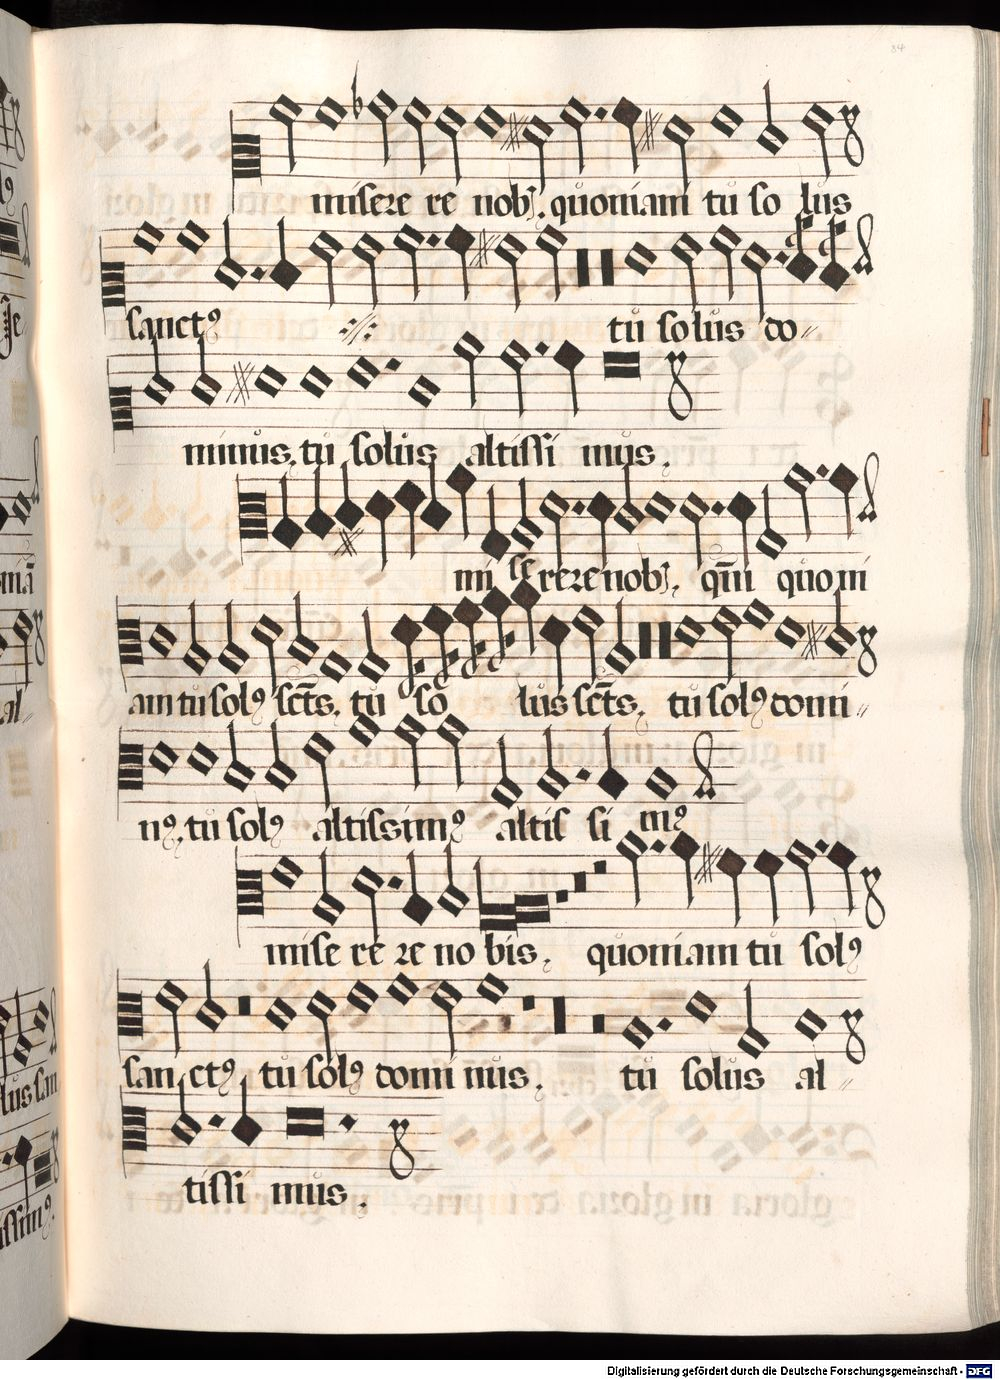 84
misere re nobꝭ. quoniam tu so lus
sanctꝯ ·//· tu solus do〃
minus, tu solus altissi mus,
mi se rere nobꝭ, qm̄ quoni
am tu solꝯ sct̄s, tu so lus sct̄s, tu solꝯ domi〃
nꝯ, tu solꝯ altissimꝯ altis si mꝯ
mise re re no bis, quoniam tu solꝯ
sanctꝯ tu solꝯ domi nus, tu solus al〃
tissi mus,
Digitalisierung gefördert durch die Deutsche Forschungsgemeinschaft - DFG